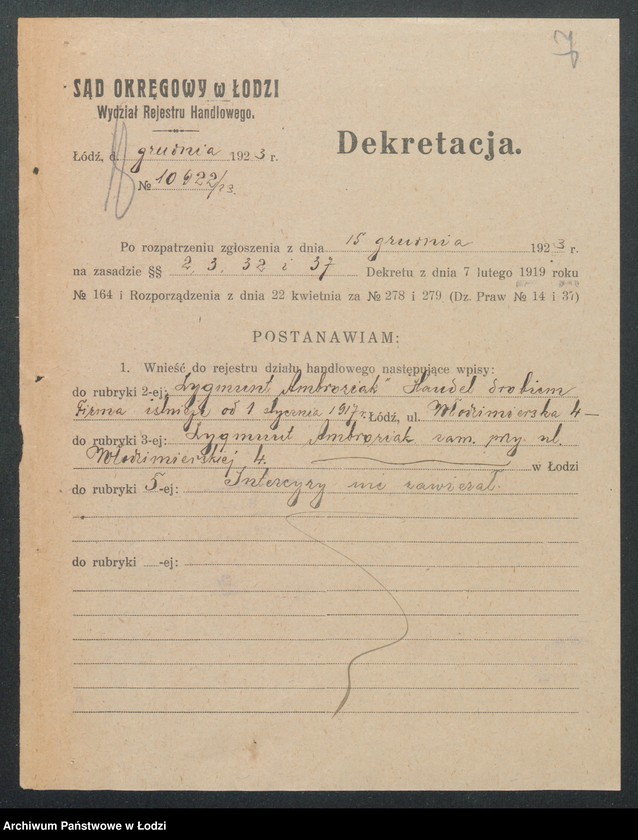 7
SĄD OKRĘGOWY w ŁODZI
Wydział Rejestru Handlowego.
Łódź, d. grudnia 1923 r.
№ 10622/23.
Dekretacja.
Po rozpatrzeniu zgłoszenia z dnia 15 grudnia 1923 r.
na zasadzie §§ 2, 3, 32 i 37 Dekretu z dnia 7 lutego 1919 roku
№ 164 i Rozporządzenia z dnia 22 kwietnia za № 278 i 279 (Dz. Praw № 14 i 37)
POSTANAWIAM:
1. Wnieść do rejestru działu handlowego następujące wpisy:
do rubryki 2-ej: „Zygmunt Ambroziak" Handel drobiem
Firma istnieje od 1 stycznia 1917 r. Łódź, ul. Włodzimierska 4 —
do rubryki 3-ej: Zygmunt Ambroziak zam. przy ul.
Włodzimierskiej 4. w Łodzi
do rubryki 5-ej: Intercyzy nie zawierał.
do rubryki -ej:
Archiwum Państwowe w Łodzi